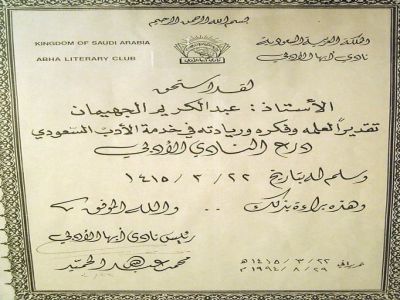 بسم الله الرحمن الرحيم
KINGDOM OF SAUDI ARABIA
ABHA LITERARY CLUB
المملكة العربية السعودية
نادي أبها الأدبي
لقد استحق
الأستاذ: عبدالكريم الجهيمان
تقديراً لعلمه وفكره وريادته في خدمة الأدب السعودي
درع النادي الأدبي
وسلم له بتاريخ ٢٢ / ٣ / ١٤١٥
وهذه براءة بذلك .. والله الموفق
رئيس نادي أبها الأدبي
محمد عبدالله الحميد
١٤١٥/٣/٢٢هـ
١٩٩٤/٨/٢٩م